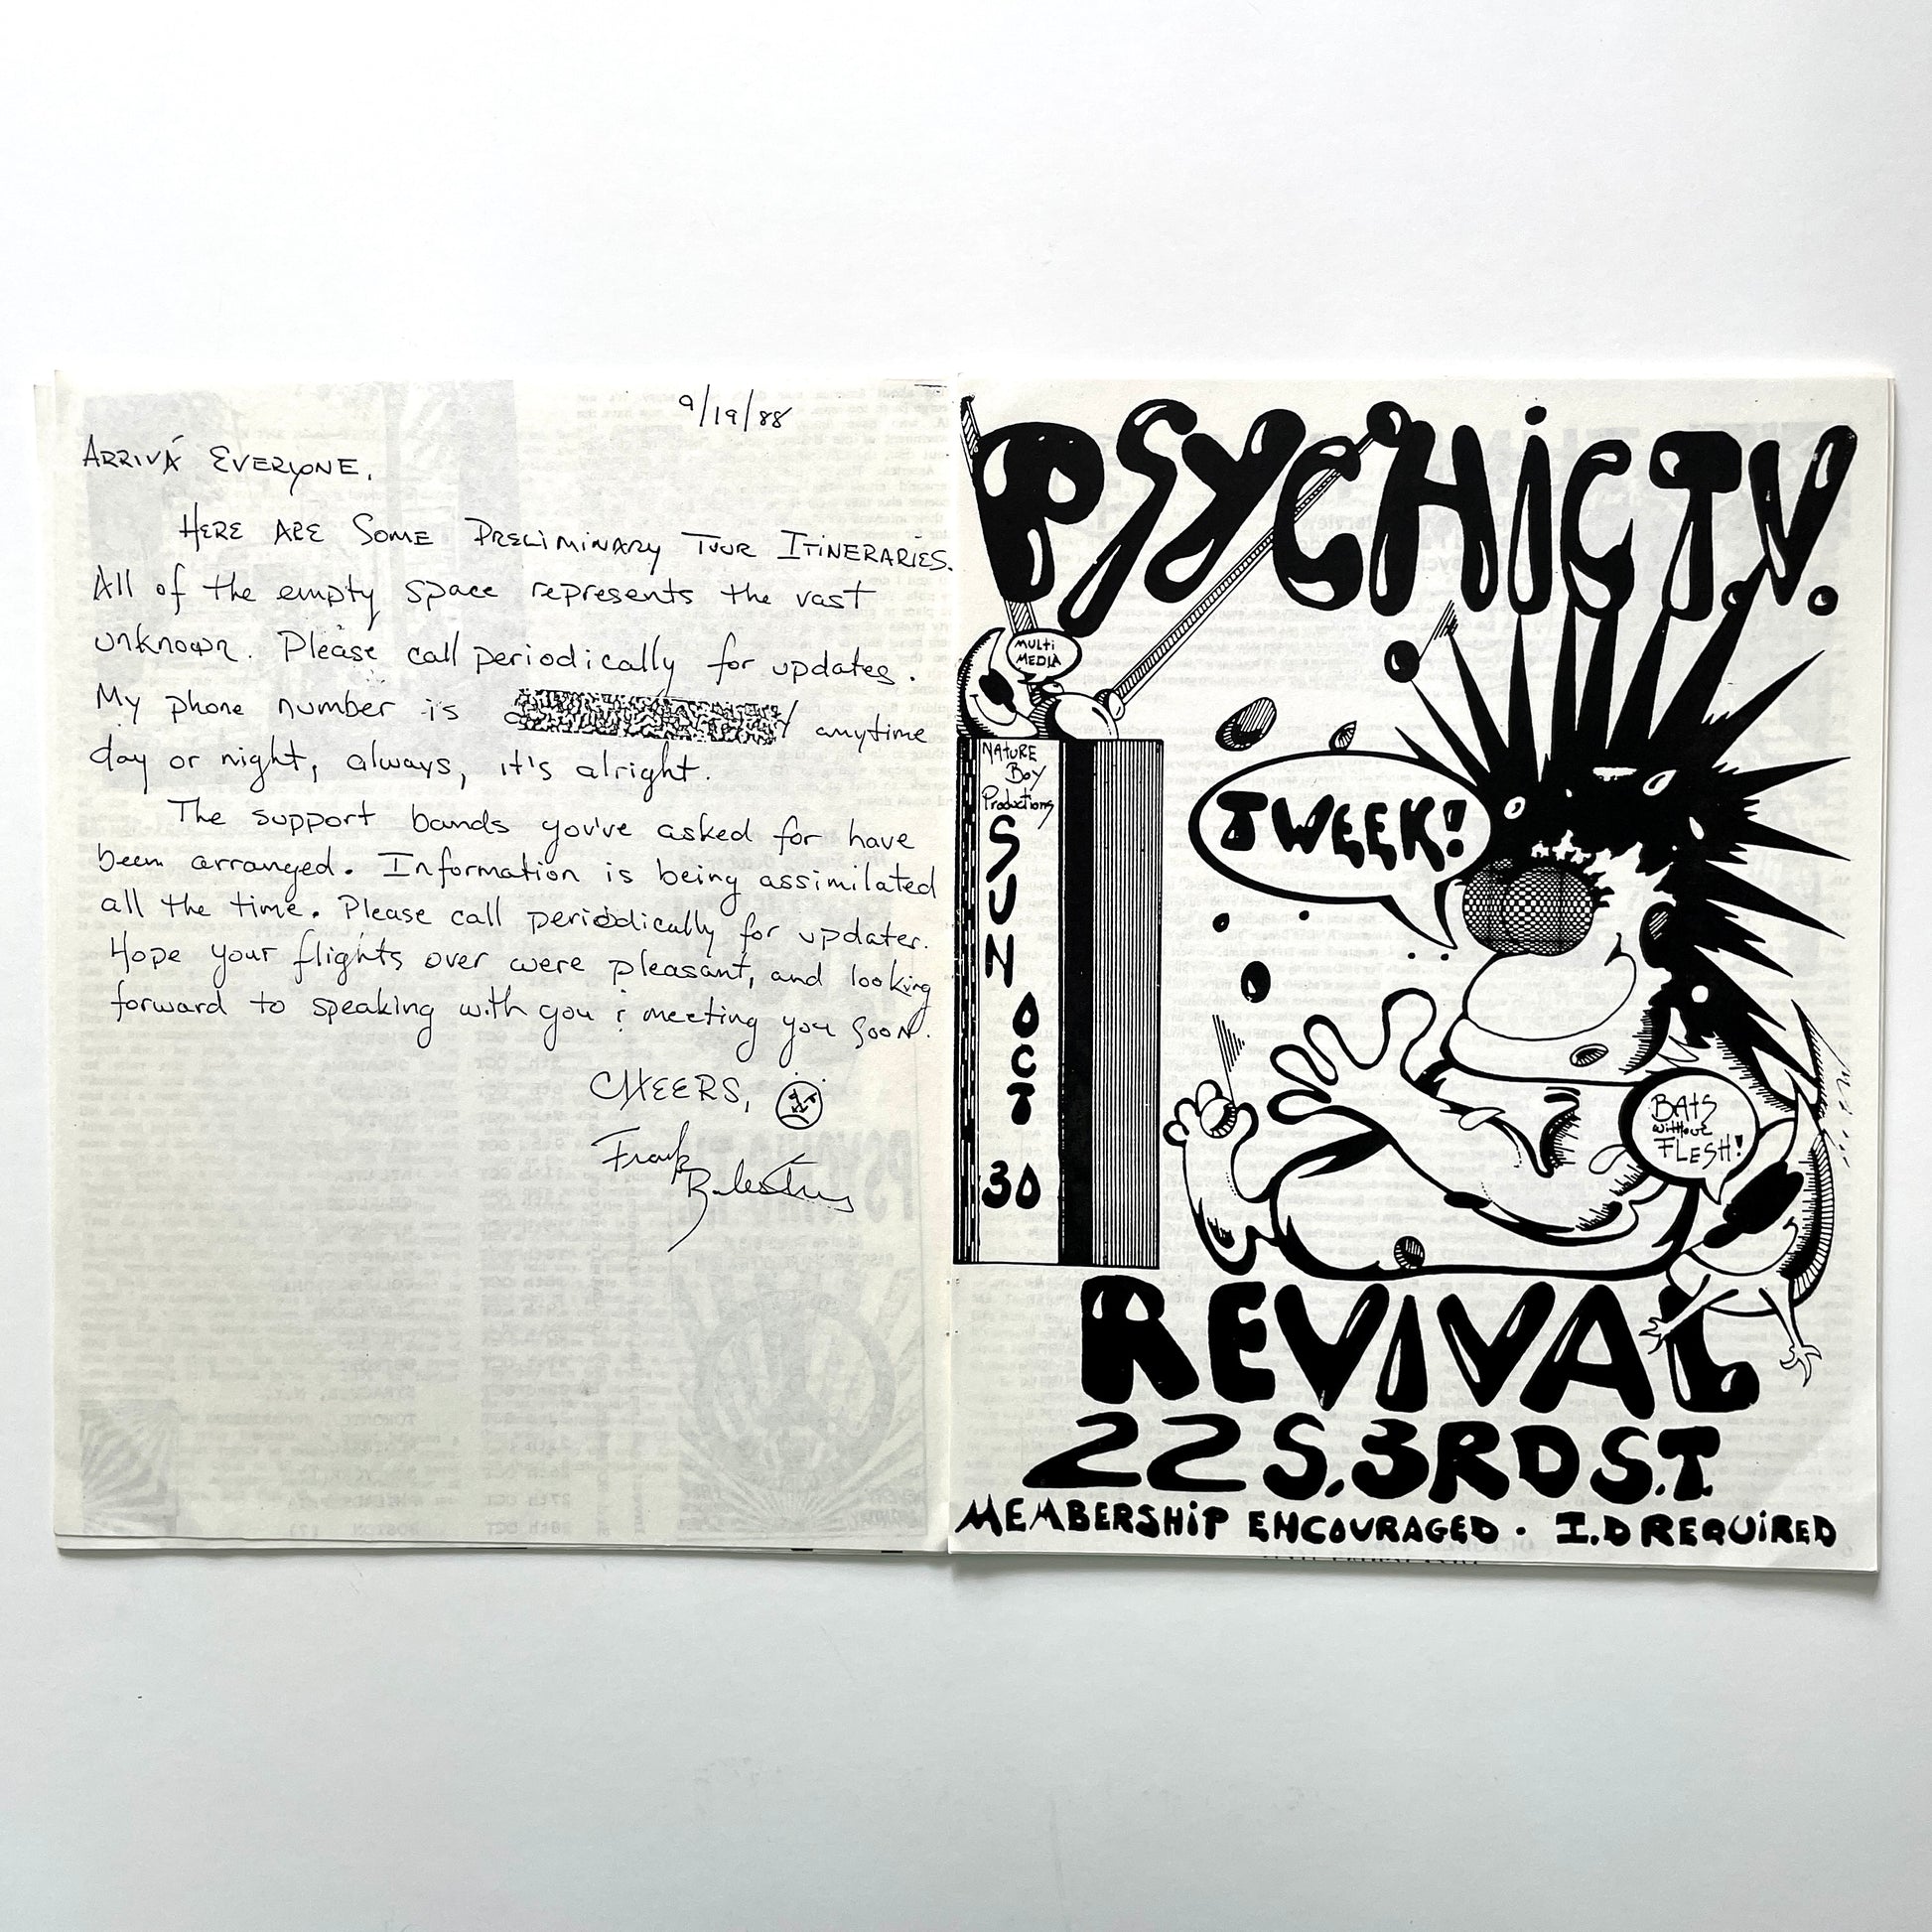 9/19/88
ARRIVÁ EVERYONE.
HERE ARE SOME PRELIMINARY TOUR ITINERARIES.
All of the empty space represents the vast
unknown. Please call periodically for updates.
My phone number is anytime
day or night, always, it's alright.
The support bands you've asked for have
been arranged. Information is being assimilated
all the time. Please call periodically for updates.
Hope your flights over were pleasant, and looking
forward to speaking with you & meeting you soon.
CHEERS,
Frank
PSYCHIC T.V.
MULTI
MEDIA
NATURE
BOY
Productions
SUN
OCT
30
TWEEK!
BATS
without
FLESH!
REVIVAL
22 S. 3RD S.T.
MEMBERSHIP ENCOURAGED · I.D REQUIRED